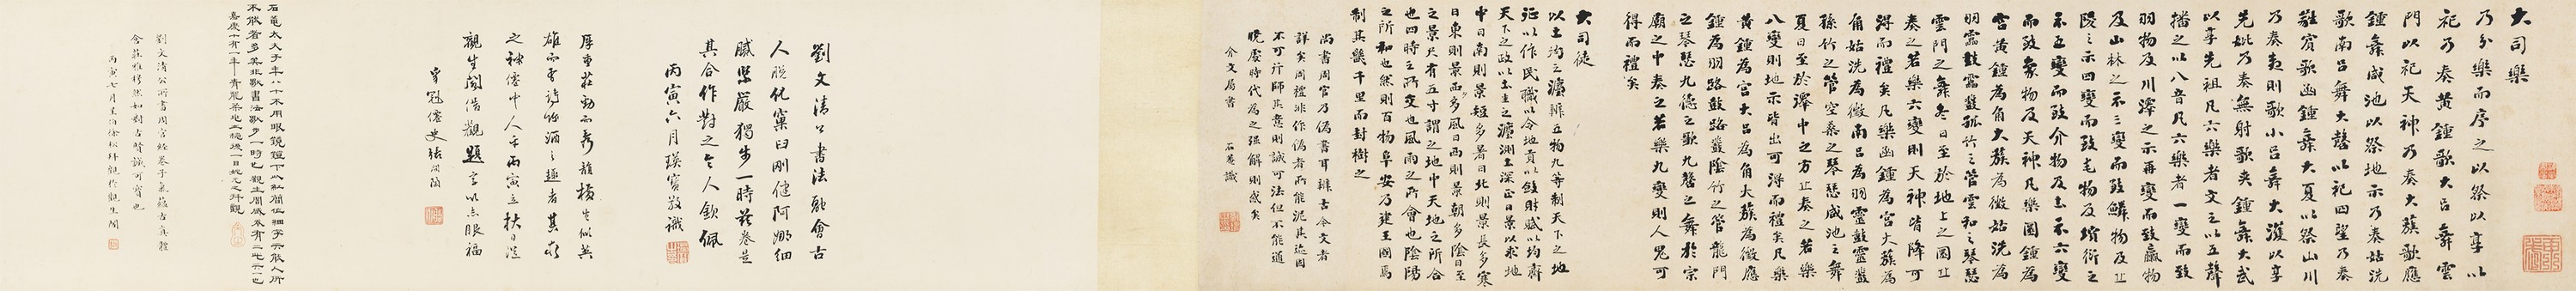 大司樂
乃分樂而序之以祭以享以
祀乃奏黃鍾歌大呂舞雲
門以祀天神乃奏大蔟歌應
鍾舞咸池以祭地示乃奏姑洗
歌南呂舞大磬以祀四望乃奏
蕤賓歌函鍾舞大夏以祭山川
乃奏夷則歌小呂舞大濩以享
先妣乃奏無射歌夾鍾舞大武
以享先祖凡六樂者文之以五聲
播之以八音凡六樂者一變而致
羽物及川澤之示再變而致臝物
及山林之示三變而致鱗物及丘
陵之示四變而致毛物及墳衍之
示五變而致介物及土示六變
而致象物及天神凡樂圜鍾為
宮黃鍾為角大蔟為徵姑洗為
羽靁鼓靁鼗孤竹之管雲和之琴瑟
雲門之舞冬日至於地上之圜丘
奏之若樂六變則天神皆降可
得而禮矣凡樂函鍾為宮大蔟為
角姑洗為徵南呂為羽靈鼓靈鼗
孫竹之管空桑之琴瑟咸池之舞
夏日至於澤中之方丘奏之若樂
八變則地示皆出可得而禮矣凡樂
黃鍾為宮大呂為角大蔟為徵應
鍾為羽路鼓路鼗陰竹之管龍門
之琴瑟九德之歌九磬之舞於宗
廟之中奏之若樂九變則人鬼可
得而禮矣
大司徒
以土均之灋辨五物九等制天下之地
征以作民職以令地貢以斂財賦以均齊
天下之政以土圭之灋測土深正日景以求地
中日南則景短多暑日北則景長多寒
日東則景夕多風日西則景朝多陰日至
之景尺有五寸謂之地中天地之所合
也四時之所交也風雨之所會也陰陽
之所和也然則百物阜安乃建王國焉
制其畿千里而封樹之
尚書周官乃偽書耳辨古今文者
詳矣周禮非作偽者所能泥其迹固
不可行師其意則誠可法但不能通
曉當時代為之強解則惑矣
介文局書 石菴識
劉文清公書法融會古
人脫化窠臼剛健阿娜細
膩緊嚴獨步一時茲卷是
其合作對之令人欽佩
丙寅六月瑛寶敬識
厚重莊勁而秀韻橫生似英
雄而有詩吟酒之趣者其
之神僊中人乎丙寅立秋日
觀生閣借觀題言以志眼福
石菴太夫子年八十不用眼鏡鐙下以紅蘭
不能者多矣
嘉慶十有一年
劉文清公所書周官經卷子氣蘊古真體
含莊雅穆然如對古聲誠可寶也
丙寅七月 徐松拜觀於觀生閣